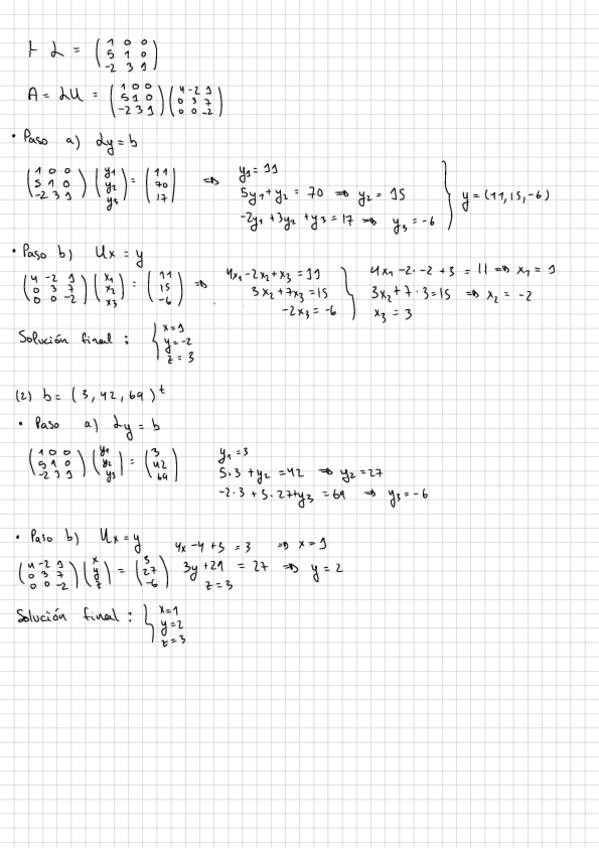 ⊢ L = (1 0 0; 5 1 0; -2 3 1)
A = LU = (1 0 0; 5 1 0; -2 3 1) (4 -2 1; 0 3 7; 0 0 -2)
• Paso a) Ly = b
(1 0 0; 5 1 0; -2 3 1) (y₁; y₂; y₃) = (11; 70; 17) ⇒ { y₁ = 11
5y₁ + y₂ = 70 ⇒ y₂ = 15
-2y₁ + 3y₂ + y₃ = 17 ⇒ y₃ = -6 } y = (11, 15, -6)
• Paso b) Ux = y
(4 -2 1; 0 3 7; 0 0 -2) (x₁; x₂; x₃) = (11; 15; -6) ⇒
4x₁ - 2x₂ + x₃ = 11
3x₂ + 7x₃ = 15
-2x₃ = -6 }
4x₁ - 2·-2 + 3 = 11 ⇒ x₁ = 1
3x₂ + 7·3 = 15 ⇒ x₂ = -2
x₃ = 3
Solución final: { x = 1
y = -2
z = 3
(2) b = (3, 42, 69)ᵗ
• Paso a) Ly = b
(1 0 0; 5 1 0; -2 3 1) (y₁; y₂; y₃) = (3; 42; 69)
y₁ = 3
5·3 + y₂ = 42 ⇒ y₂ = 27
-2·3 + 3·27 + y₃ = 69 ⇒ y₃ = -6
• Paso b) Ux = y
(4 -2 1; 0 3 7; 0 0 -2) (x; y; z) = (3; 27; -6)
4x - 4 + 3 = 3 ⇒ x = 1
3y + 21 = 27 ⇒ y = 2
z = 3
Solución final: { x = 1
y = 2
z = 3